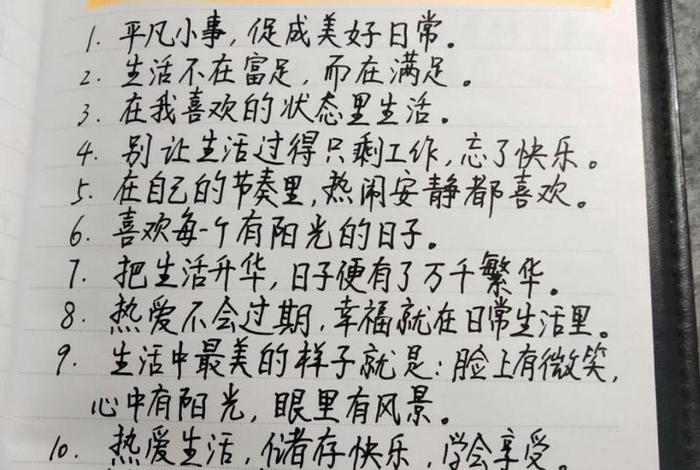 1. 平凡小事，促成美好日常。
2. 生活不在富足，而在满足。
3. 在我喜欢的状态里生活。
4. 别让生活过得只剩工作，忘了快乐。
5. 在自己的节奏里，热闹安静都喜欢。
6. 喜欢每一个有阳光的日子。
7. 把生活升华，日子便有了万千繁华。
8. 热爱不会过期，幸福就在日常生活里。
9. 生活中最美的样子就是：脸上有微笑，
心中有阳光，眼里有风景。
10. 热爱生活，储存快乐，学会享受。